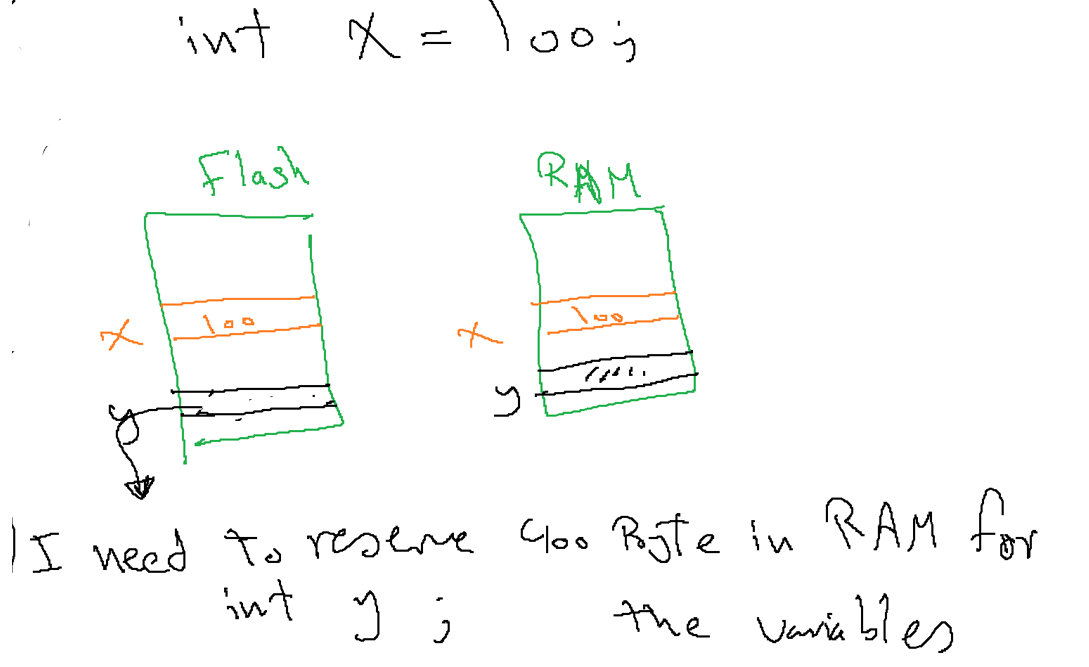 int x = 100;
Flash RAM
x 100 x 100
y y
I need to reserve 400 Byte in RAM for
int y ; the variables